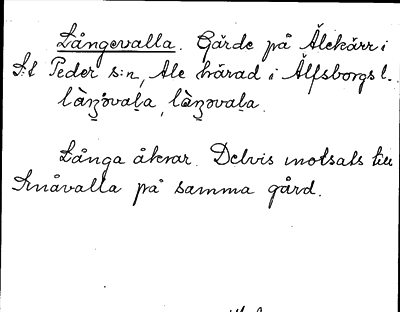 Långevalla. Gärde på Älekärr i
S:t Peder s:n, Ale härad i Älfsborgs l.
làŋ̣ovaḷa, làŋ̣ovaḷa.
Långa åkrar. Delvis motsats till
Småvalla på samma gård.